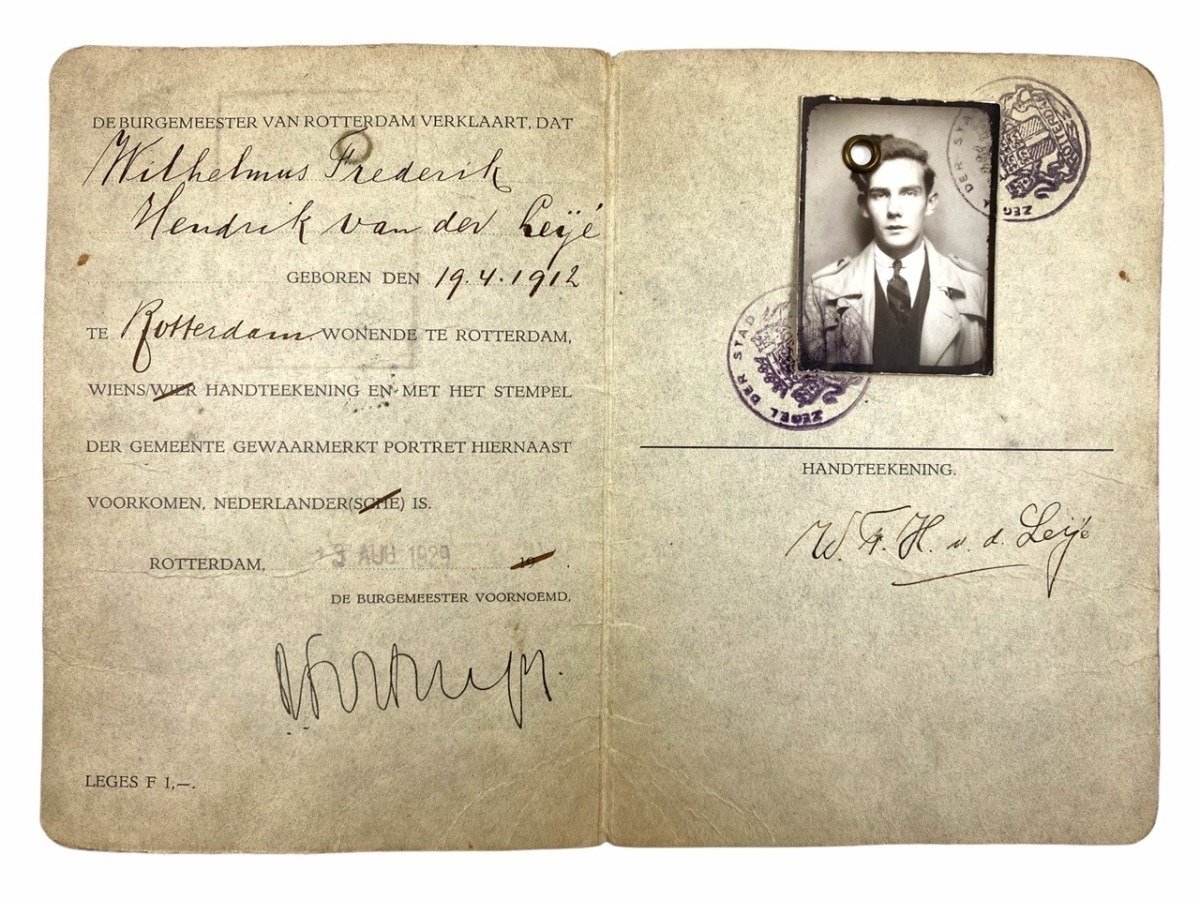 DE BURGEMEESTER VAN ROTTERDAM VERKLAART, DAT
Wilhelmus Frederik
Hendrik van der Leijé
GEBOREN DEN 19.4.1912
TE Rotterdam WONENDE TE ROTTERDAM,
WIENS/WIER HANDTEEKENING EN MET HET STEMPEL
DER GEMEENTE GEWAARMERKT PORTRET HIERNAAST
VOORKOMEN, NEDERLANDER(SCHE) IS.
ROTTERDAM, 13 AUG 1929 19 .
DE BURGEMEESTER VOORNOEMD,
LEGES F 1,—.
ZEGEL DER STAD
ZEGEL DER STAD
HANDTEEKENING.
W. F. H. v. d. Leijé